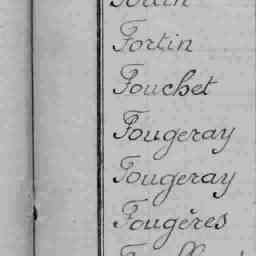 Fortin
Fouchet
Fougeray
Fougeray
Fougères